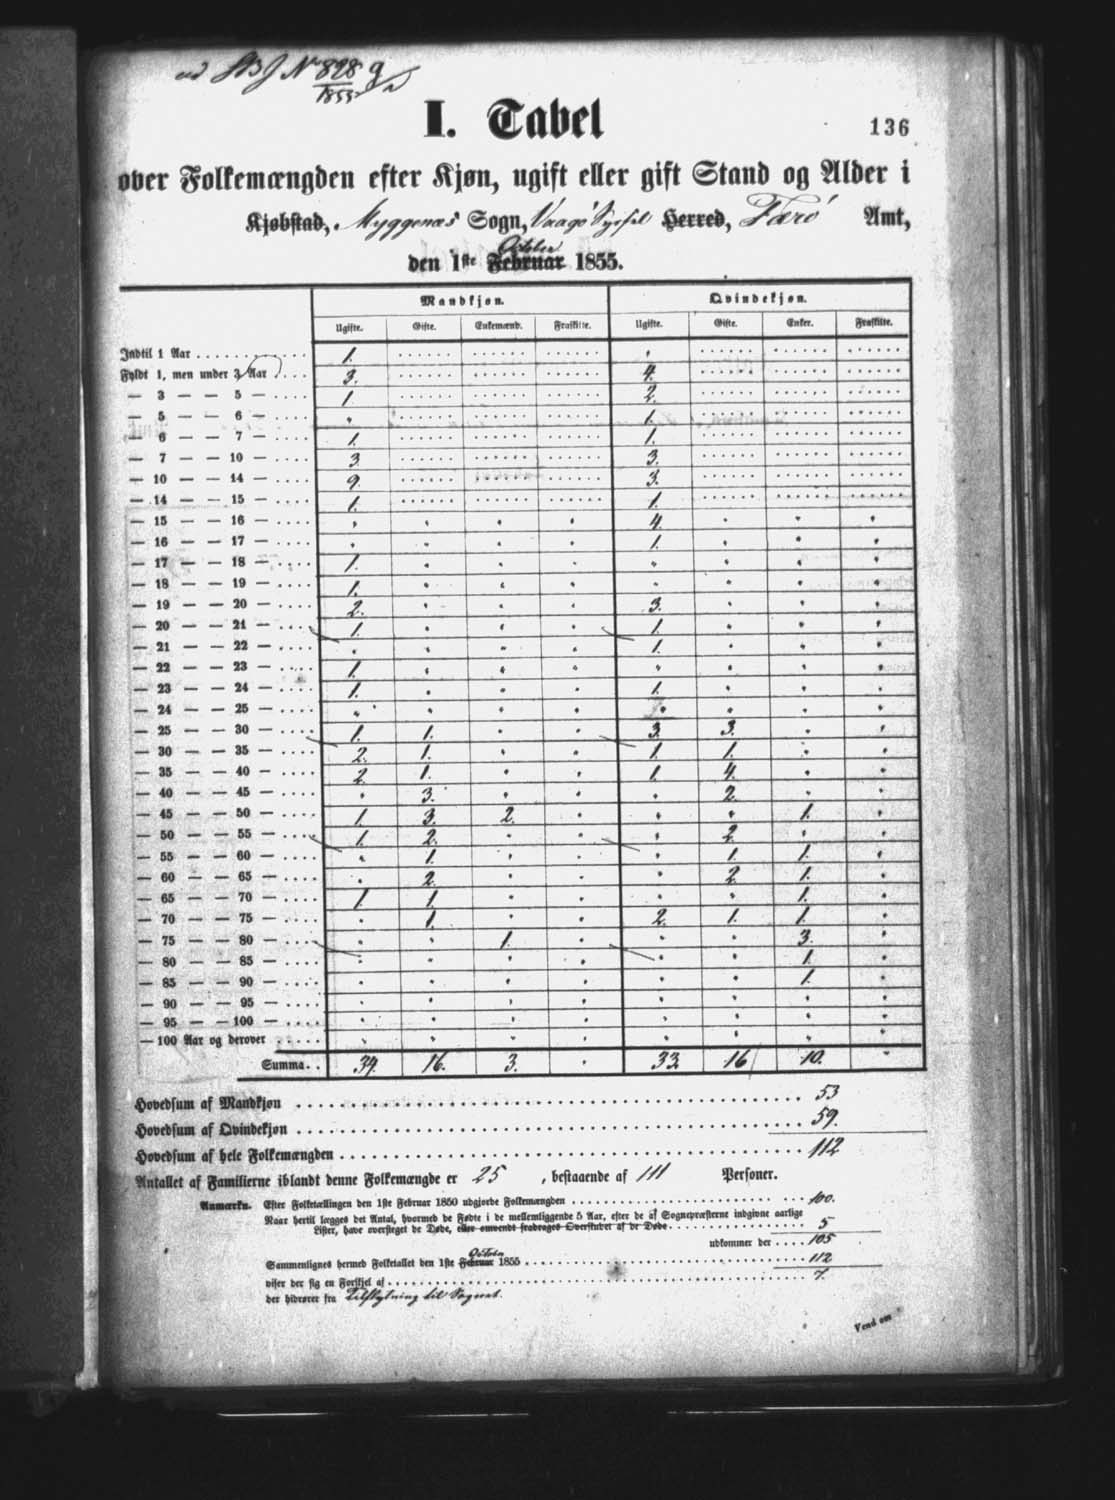 ad J N 828
1855
I. Tabel
136
over Folkemængden efter Kjøn, ugift eller gift Stand og Alder i
Kjøbstad, Myggenæs Sogn, Vaagø Syssel Herred, Færø Amt,
October
den 1ste Februar 1855.
Mandkjøn. Qvindekjøn.
Ugifte. Gifte. Enkemænd. Fraskilte. Ugifte. Gifte. Enker. Fraskilte.
Indtil 1 Aar 1. "
Fyldt 1, men under 3 Aar 3. 4.
— 3 — — 5 — 1. 2.
— 5 — — 6 — " 1.
— 6 — — 7 — 1. 1.
— 7 — — 10 — 3. 3.
— 10 — — 14 — 9. 3.
— 14 — — 15 — 1. 1.
— 15 — — 16 — " " " " 4. " " "
— 16 — — 17 — " " " " 1. " " "
— 17 — — 18 — 1. " " " " " " "
— 18 — — 19 — 1. " " " " " " "
— 19 — — 20 — 2. " " " 3. " " "
— 20 — — 21 — 1. " " " 1. " " "
— 21 — — 22 — " " " " 1. " " "
— 22 — — 23 — 1. " " " " " " "
— 23 — — 24 — 1. " " " 1. " " "
— 24 — — 25 — " " " " " " " "
— 25 — — 30 — 1. 1. " " 3. 3. " "
— 30 — — 35 — 2. 1. " " 1. 1. " "
— 35 — — 40 — 2. 1. " " 1. 4. " "
— 40 — — 45 — " 3. " " " 2. " "
— 45 — — 50 — 1. 3. 2. " " " 1. "
— 50 — — 55 — 1. 2. " " " 2. " "
— 55 — — 60 — " 1. " " " 1. 1. "
— 60 — — 65 — " 2. " " " 2. 1. "
— 65 — — 70 — 1. 1. " " " " 1. "
— 70 — — 75 — " 1. " " 2. 1. 1. "
— 75 — — 80 — " " 1. " " " 3. "
— 80 — — 85 — " " " " " " 1. "
— 85 — — 90 — " " " " " " 1. "
— 90 — — 95 — " " " " " " " "
— 95 — — 100 — " " " " " " " "
— 100 Aar og derover " " " " " " " "
Summa 34. 16. 3. " 33. 16 10. "
Hovedsum af Mandkjøn 53
Hovedsum af Qvindekjøn 59.
Hovedsum af hele Folkemængden 112
Antallet af Familierne iblandt denne Folkemængde er 25, bestaaende af 111 Personer.
Anmærkn. Efter Folketællingen den 1ste Februar 1850 udgjorde Folkemængden 100.
Naar hertil lægges det Antal, hvormed de Fødte i de mellemliggende 5 Aar, efter de af Sognepræsterne indgivne aarlige
Lister, have oversteget de Døde, eller omvendt fradrages Overskudet af de Døde 5
udkommer der 105
October
Sammenlignes hermed Folketallet den 1ste Februar 1855 112
viser der sig en Forskjel af 7.
der hidrører fra Tilflytning til Sognet.
Vend om